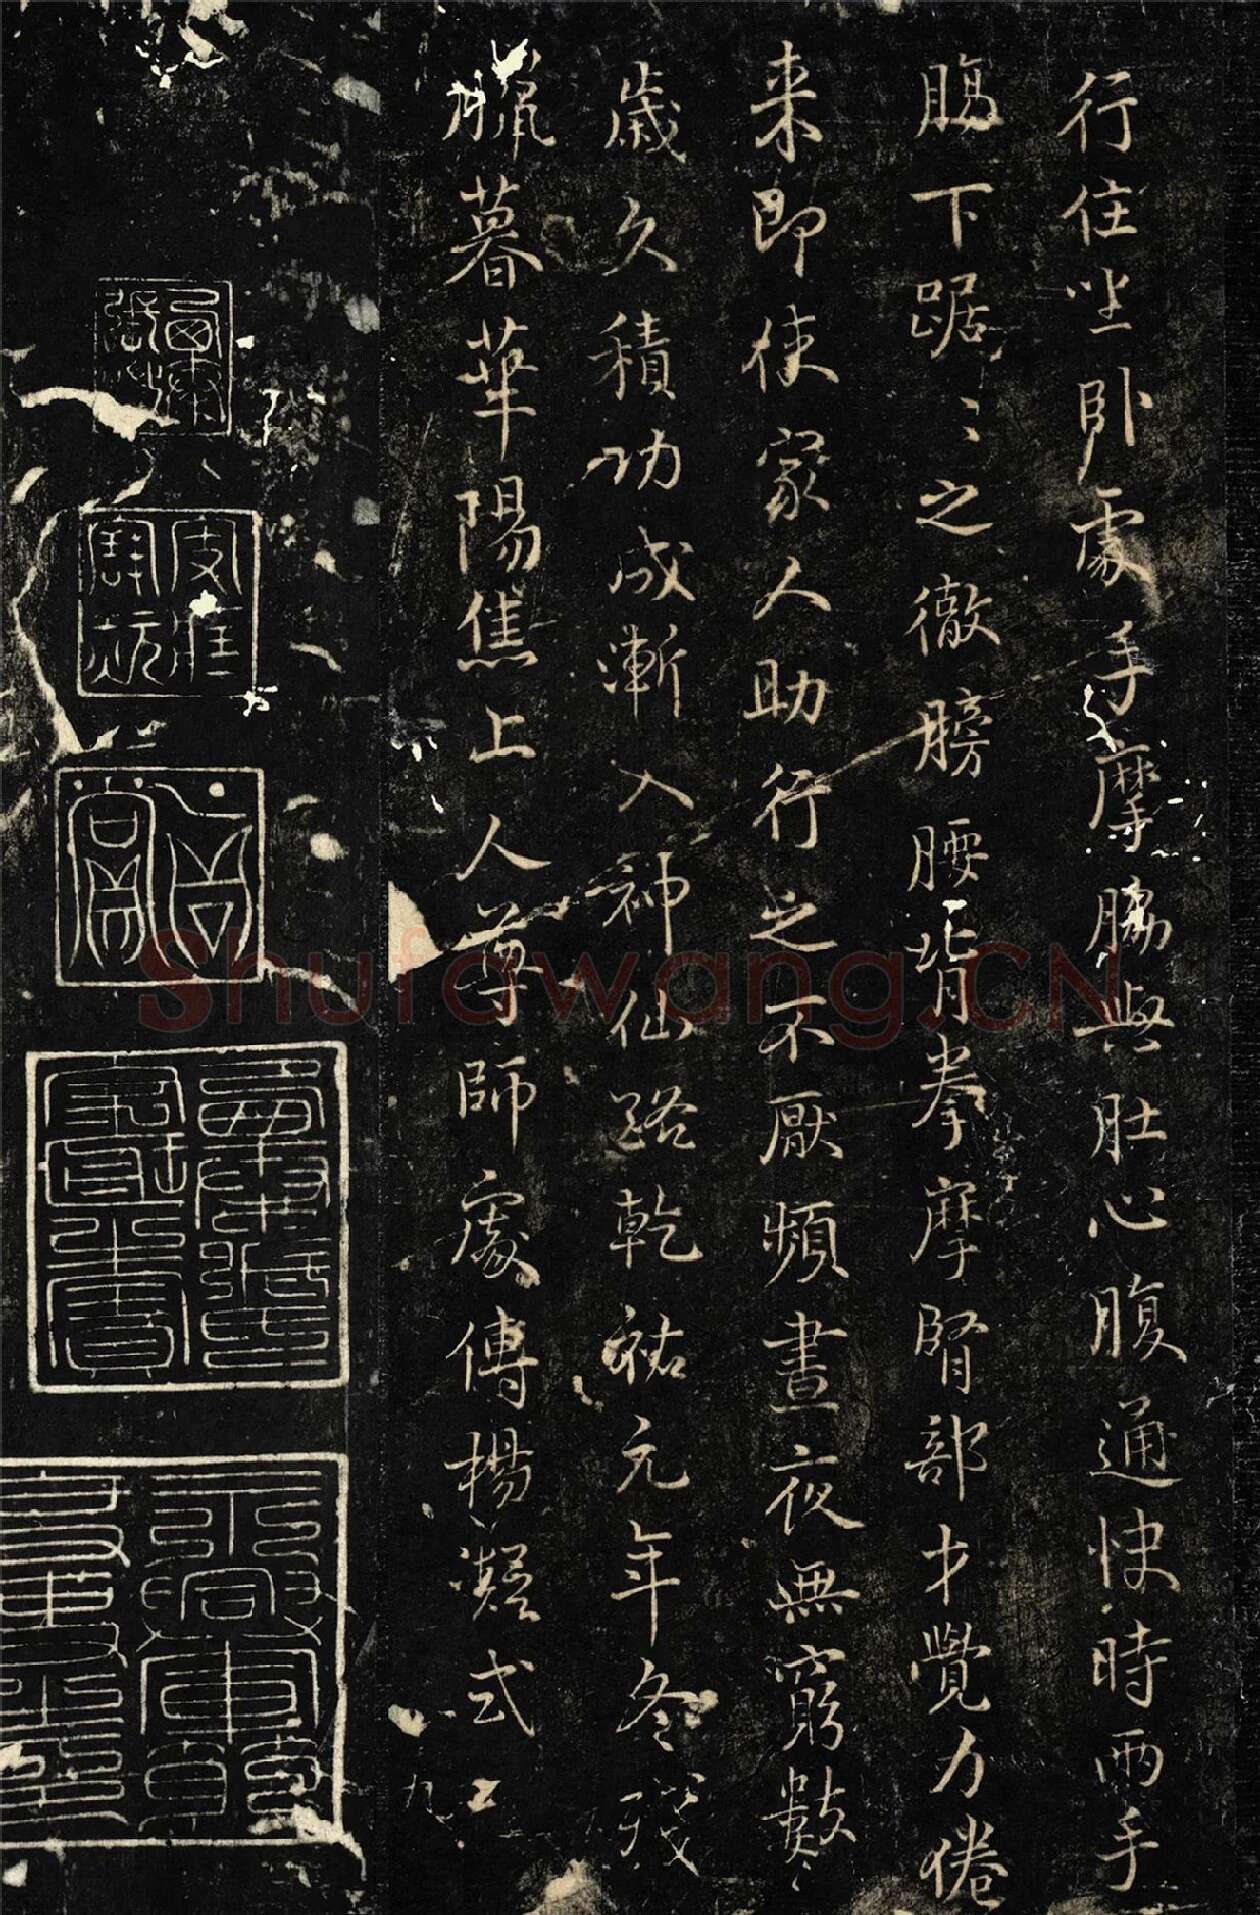 行住坐卧處手摩脇與肚心腹通快時兩手
腸下踞〻之徹膀腰背拳摩腎部才覺力倦
来即使家人助行之不厭頻晝夜無窮數
歲久積功成漸入神仙路乾祐元年冬殘
臘暮華陽焦上人尊師處傳楊凝式
九
Shufawang.CN